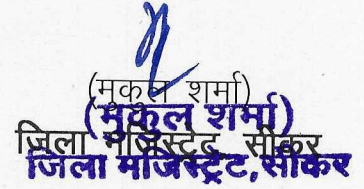 (मुकुल शर्मा)
(मुकुल शर्मा)
जिला मजिस्ट्रेट सीकर
जिला मजिस्ट्रेट, सीकर